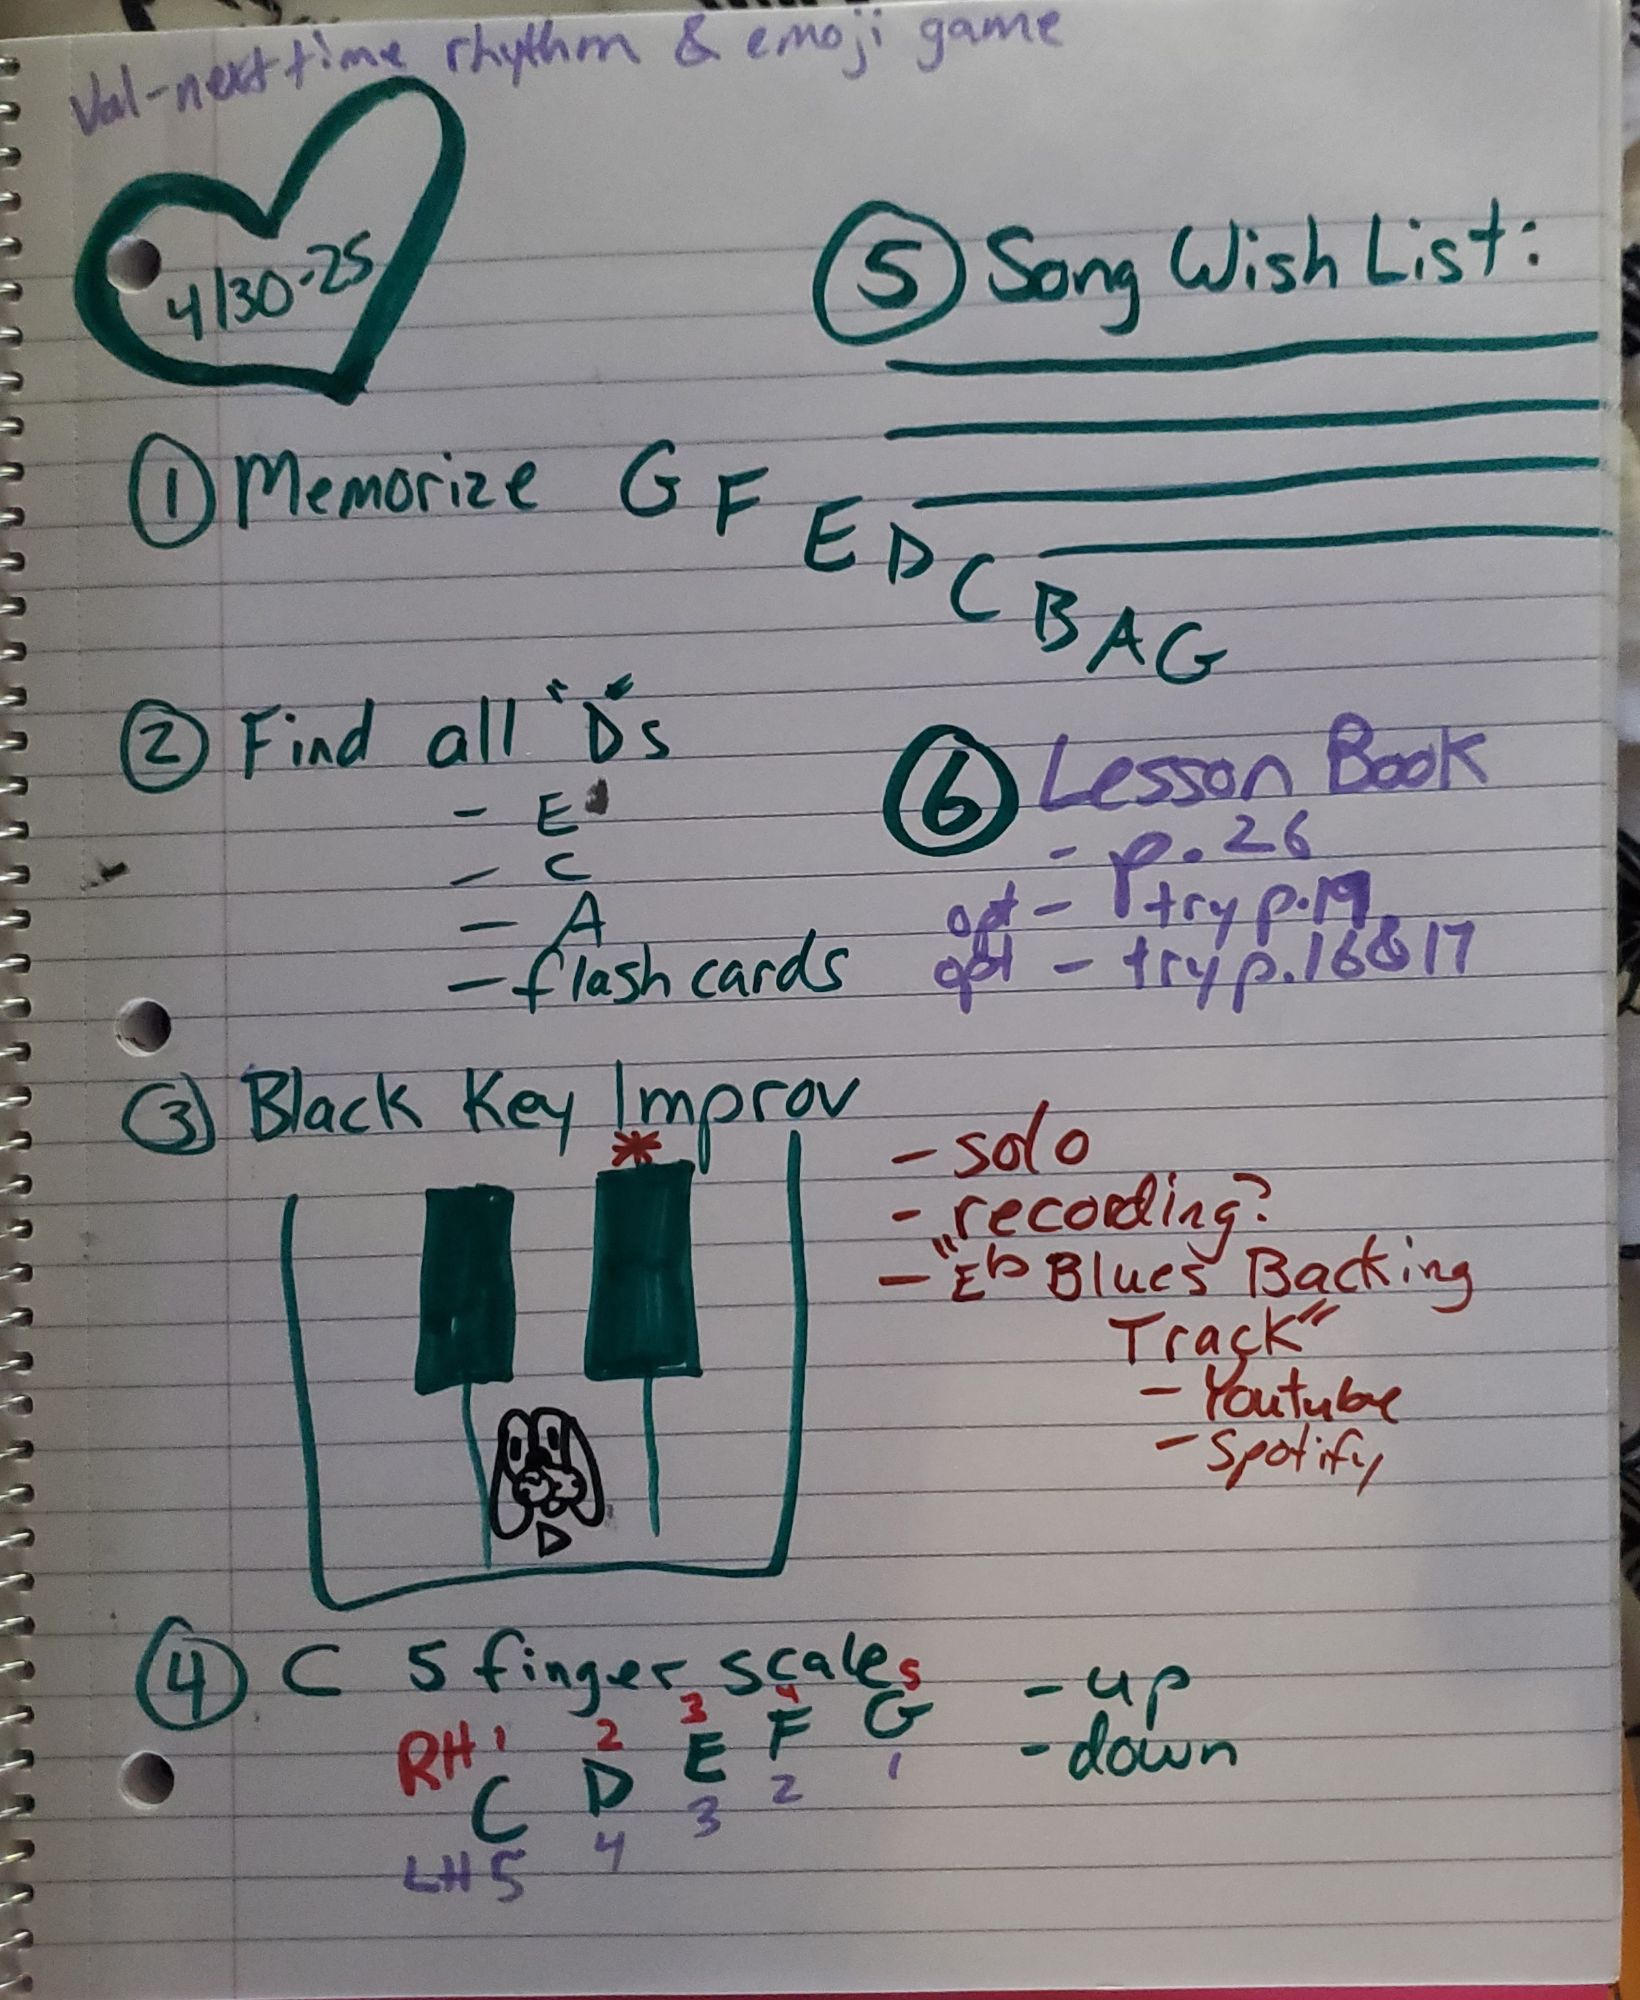 Val-next time rhythm & emoji game
4/30-25
① Memorize G F E D C B A G
② Find all "D"s
- E
- C
- A
- flash cards
③ Black Key Improv
*
D
- solo
- recording?
- "E♭ Blues Backing
Track"
- Youtube
- Spotify
④ C 5 finger scale
RH 1 2 3 4 5
C D E F G
LH 5 4 3 2 1
- up
- down
⑤ Song Wish List:
⑥ Lesson Book
- p. 26
opt - try p.19
opt - try p.16&17